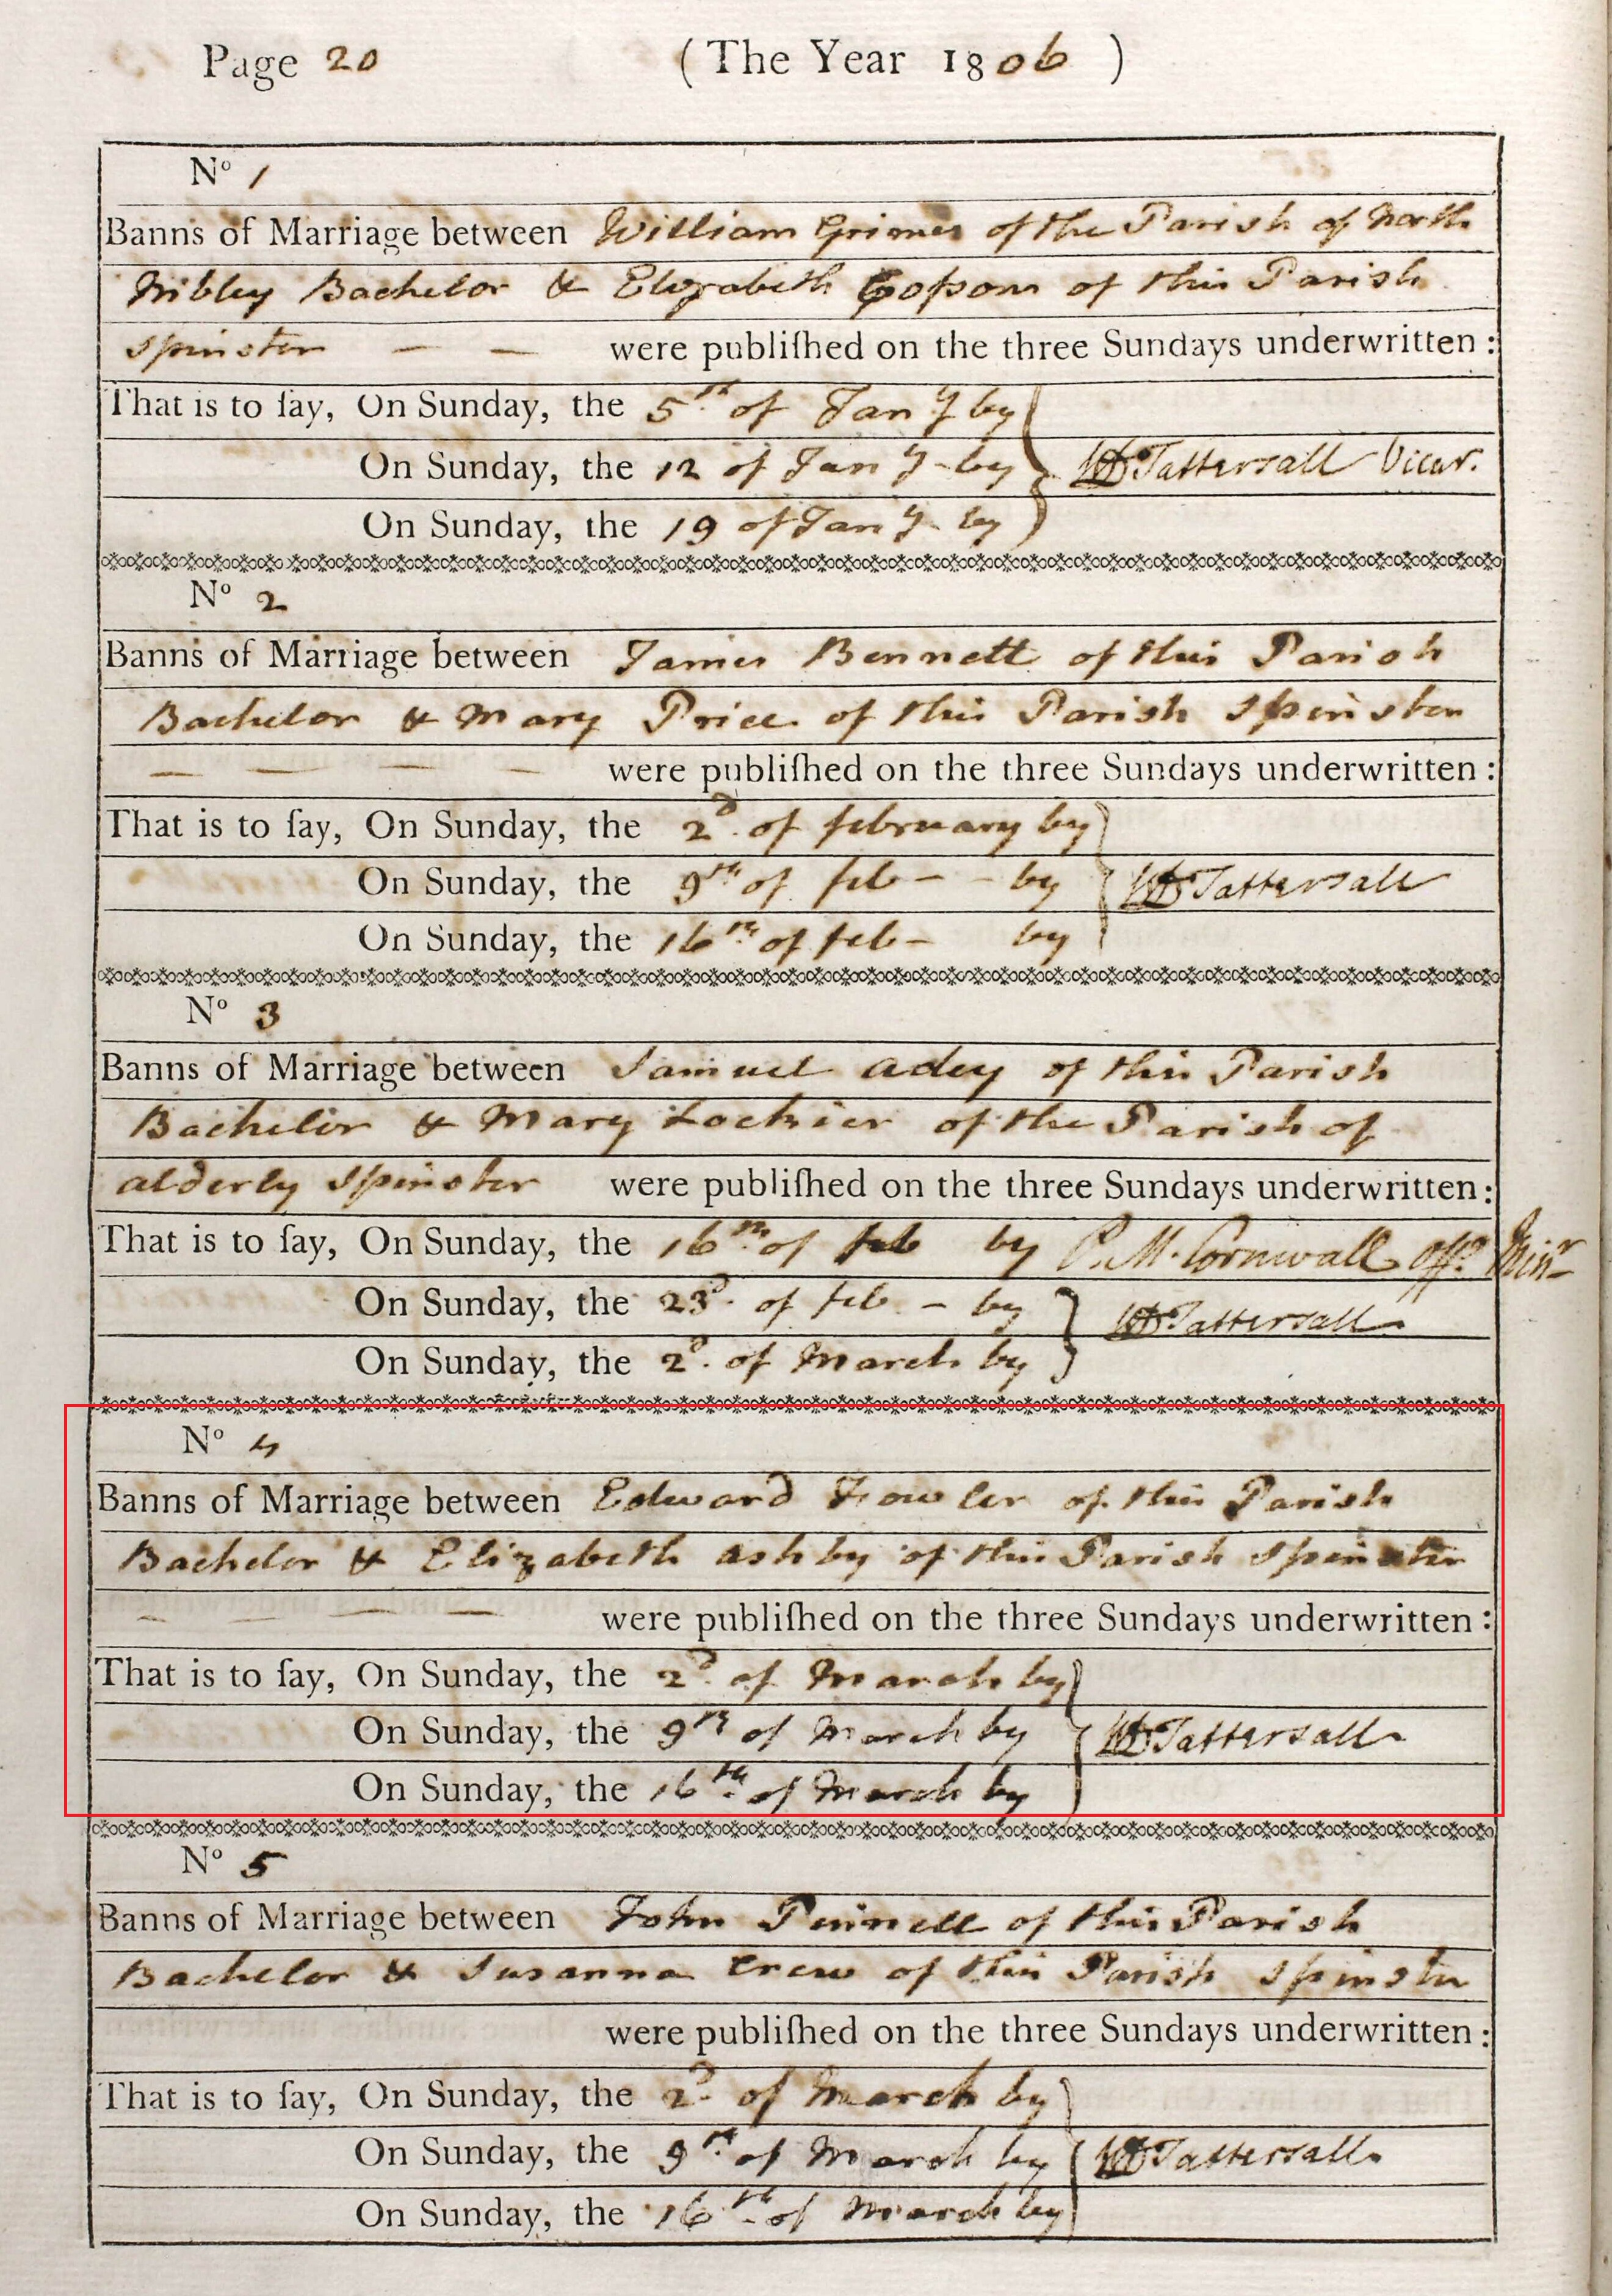 Page 20 (The Year 1806 )
Nº 1
Banns of Marriage between William Grimes of the Parish of North
Nibley Bachelor & Elizabeth of this Parish
spinster — — were publiſhed on the three Sundays underwritten :
That is to ſay, On Sunday, the 5th of Jany by
On Sunday, the 12 of Jany by Tattersall Vicar.
On Sunday, the 19 of Jany by
Nº 2
Banns of Marriage between James Bennett of this Parish
Bachelor & Mary Price of this Parish Spinster
— — — — were publiſhed on the three Sundays underwritten :
That is to ſay, On Sunday, the 2d. of february by
On Sunday, the 9th of feb - - by Tattersall
On Sunday, the 16th of feb - by
Nº 3
Banns of Marriage between Samuel adey of this Parish
Bachelor & Mary Lockier of the Parish of
alderly spinster were publiſhed on the three Sundays underwritten :
That is to ſay, On Sunday, the 16th of feb by P. M. Cornwall offg Minr
On Sunday, the 23d. of feb - by Tattersall
On Sunday, the 2d. of March by
Nº 4
Banns of Marriage between Edward Fowler of this Parish
Bachelor & Elizabeth ashby of this Parish spinster
— — — — were publiſhed on the three Sundays underwritten :
That is to ſay, On Sunday, the 2d of March by
On Sunday, the 9th of March by Tattersall
On Sunday, the 16th of March by
Nº 5
Banns of Marriage between John Pinnell of this Parish
Bachelor & Susanna Crew of this Parish spinster
were publiſhed on the three Sundays underwritten :
That is to ſay, On Sunday, the 2d. of March by
On Sunday, the 9th of March by Tattersall
On Sunday, the 16th of March by